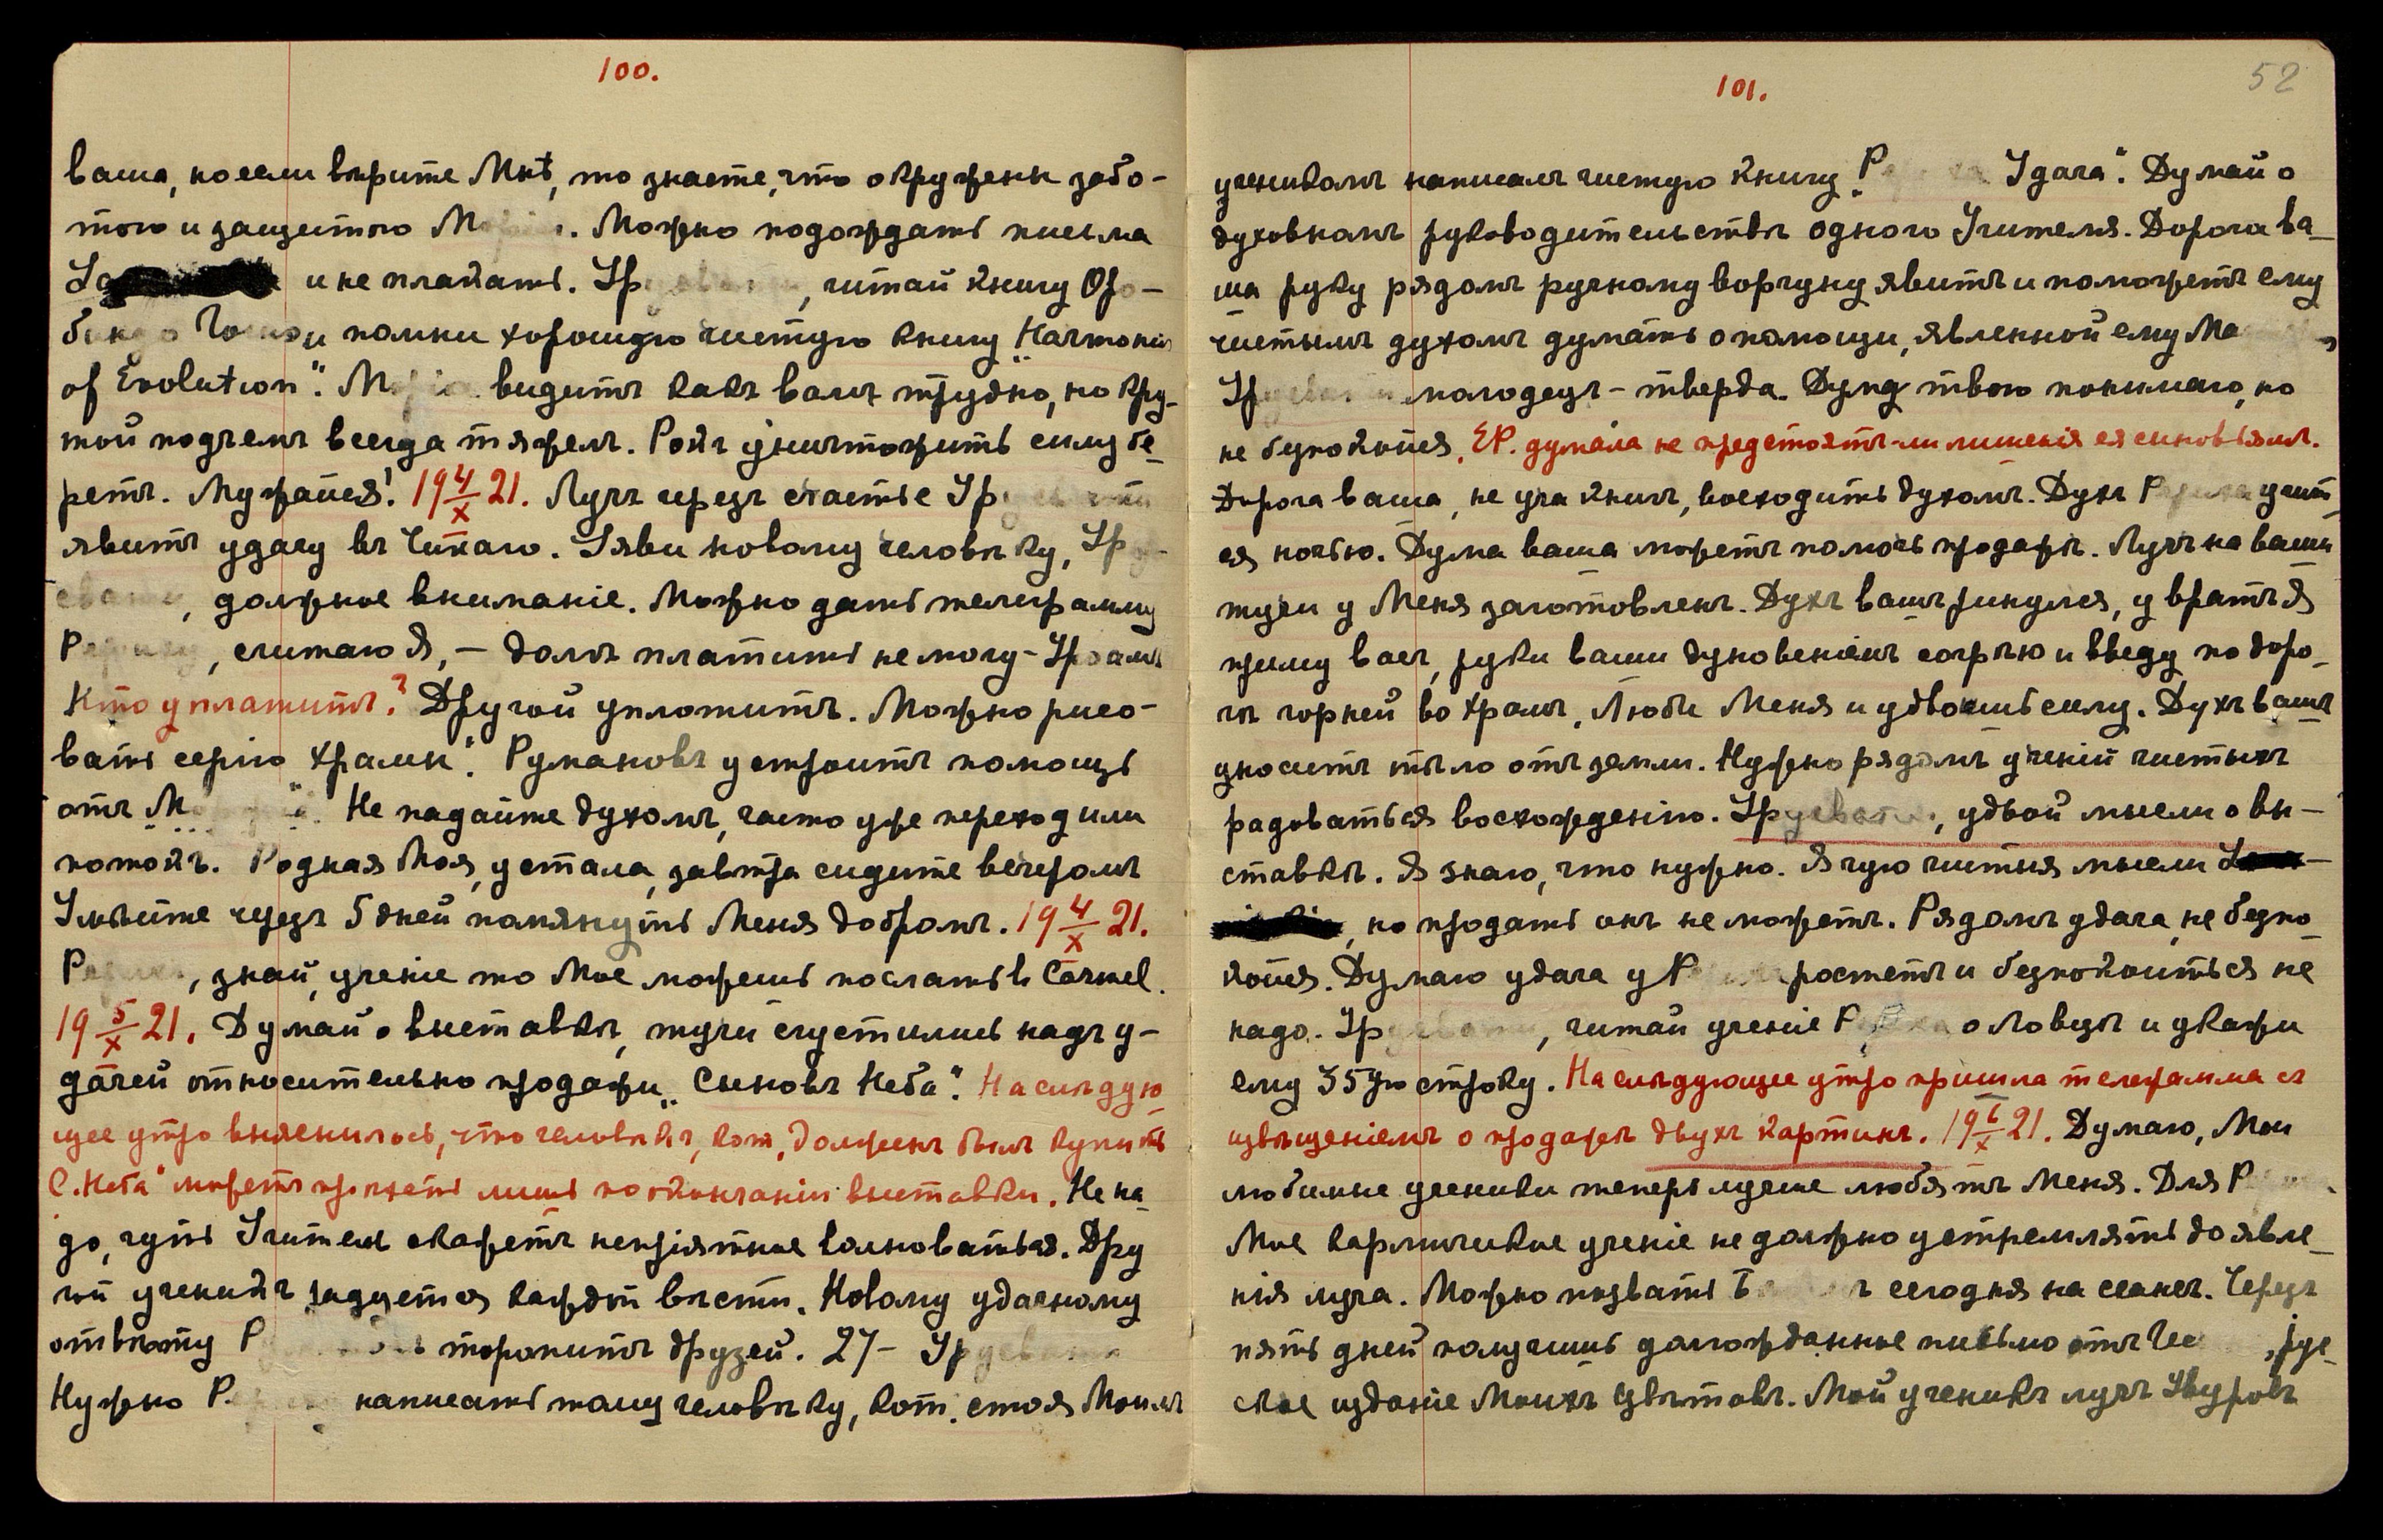 100.
ваша, но если вѣрите Мнѣ, то знаете, что окружены забо-
тою и защитою М. Можно подождать письма
и не плакать. Ур, читай книгу Оро-
бындо и помни хорошую чистую книгу „Harmonics
of Evolution". М видитъ какъ вамъ трудно, но кру-
той подъемъ всегда тяжелъ. Рокъ уничтожить силу бе-
ретъ. Мужайся! 19 4/X 21. Лучъ черезъ счастье Ур
явитъ удачу въ Чикаго. Уяви новому человѣку, Ур
, должное вниманіе. Можно дать телеграмму
Р, считаю Я, — долгъ платить не могу -
Кто уплатитъ? Другой уплотитъ. Можно рисо-
вать серію храмы". Румановъ устроитъ помощь
отъ М Не падайте духомъ, часто уже переходили
потокъ. Родная Моя, устала, завтра сидите вечеромъ
Умѣйте черезъ 5 дней помянуть Меня добромъ. 19 4/X 21.
Р, знай, ученіе то Мое можешь послать в Carmel.
19 5/X 21. Думай о выставкѣ, тучи сгустились надъ у-
дачей относительно продажи „Сыновъ Неба". На слѣдую-
щее утро выяснилось, что человѣкъ, кот. долженъ былъ купить
С. Неба" можетъ пріѣхать лишь по окончаніи выставки. Не на-
до, чуть Учитель скажетъ непріятное волноваться. Дру
гой ученикъ радуется каждой вѣсти. Новому удачному
отвѣту Р торопитъ друзей. 27 - Ур
Нужно Р написать тому человѣку, кот. стоя Моимъ
101.
52
ученикомъ написалъ чистую книгу „Р Удача". Думай о
духовномъ руководительствѣ одного Учителя. Дорога ва-
ша руку рядомъ ручному ворчуну явитъ и поможетъ ему
чистымъ духомъ думать о помощи, явленной ему М
Ур молодецъ - тверда. Думу твою понимаю, но
не безпокойся. ЕР. думала не предстоятъ-ли лишенія ея сыновьямъ.
Дорога ваша, не уча книг, восходить духомъ. Духъ Р учит-
ся ночью. Дума ваша можетъ помочь продажѣ. Лучъ на ваши
тучи у Меня заготовленъ. Духъ вашъ ринулся, у вратъ Я
приму васъ, руки ваши дуновеніемъ согрѣю и введу по доро-
гѣ горней во храмъ. Люби Меня и удвоишь силу. Духъ вашъ
уноситъ тѣло отъ земли. Нужно рядомъ ученій чистыхъ
радоваться восхожденію. Ур, удвой мысли о вы-
ставкѣ. Я знаю, что нужно. Я чую чистыя мысли
, но продать онъ не можетъ. Рядомъ удача, не безпо-
койся. Думаю удача у Р ростетъ и безпокоиться не
надо. Ур, читай ученіе Р о Ловцѣ и укажи
ему 357ю строку. На слѣдующее утро пришла телеграмма съ
извѣщеніемъ о продажѣ двухъ картинъ. 21. Думаю, Мои
любимые ученики теперь лучше любятъ Меня. Для Р
Мое кармическое ученіе не должно устремлять до явле-
нія луча. Можно позвать сегодня на сеансъ. Черезъ
пять дней получишь долгожданное письмо отъ , рус-
ское изданіе Моихъ Цвѣтовъ. Мой ученикъ лучъ Узуровъ